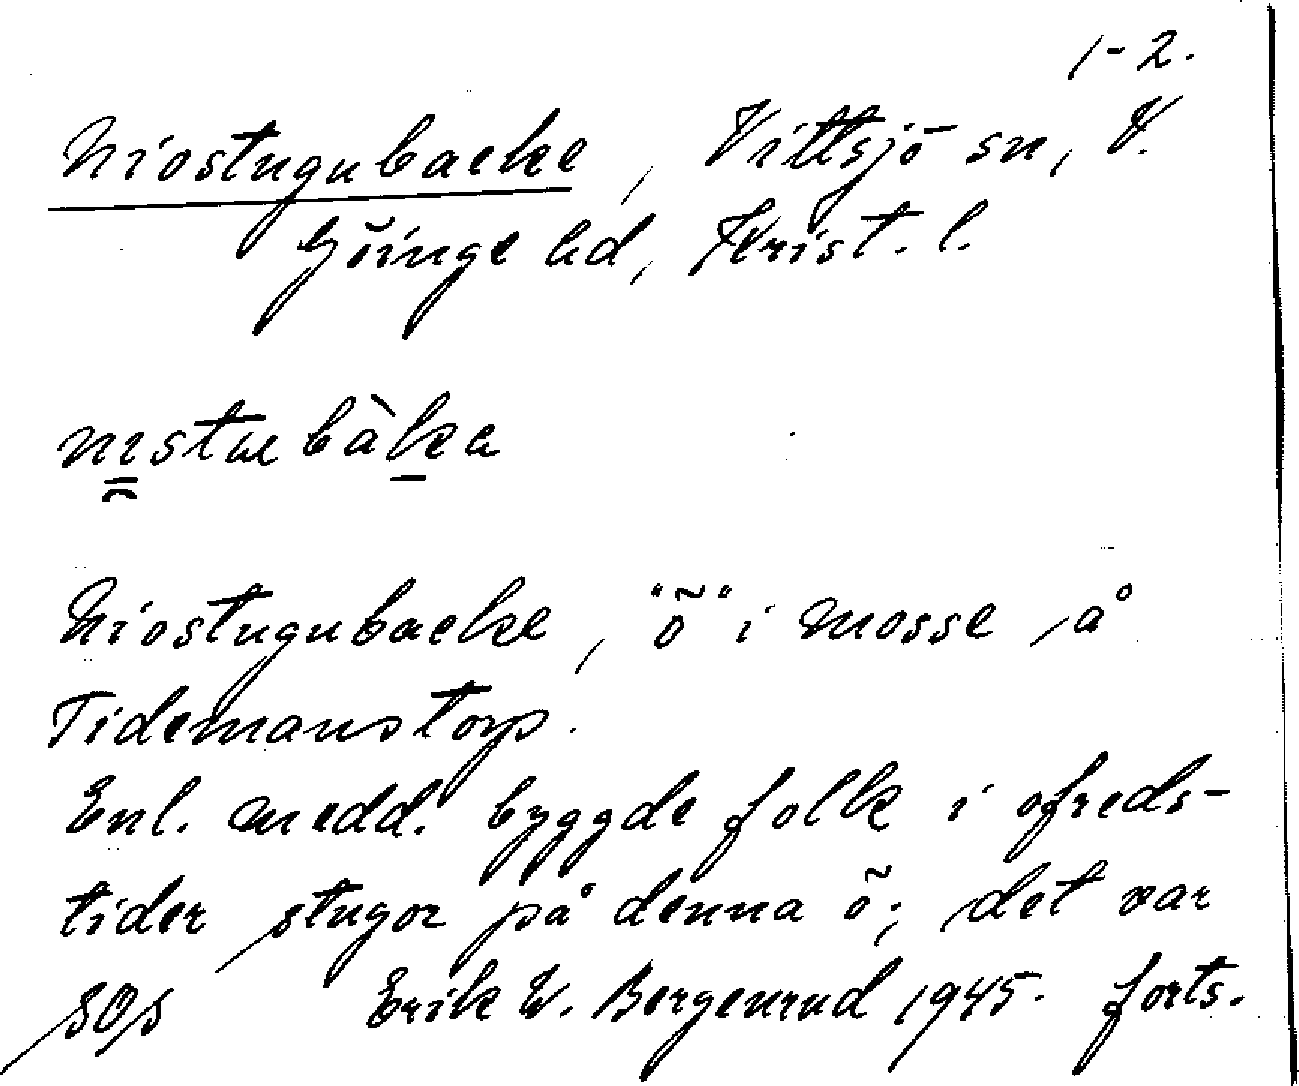 1-2.
Niostugubacke, Vittsjö sn, V.
Göinge hd, Krist. l.
nıstuebàka
Niostugubacke, "ö" i mosse å
Tidemanstorp.
Enl. medd. byggde folk i ofreds-
tider stugor på denna ö; det var
Erik W. Bergenrud 1945. forts.